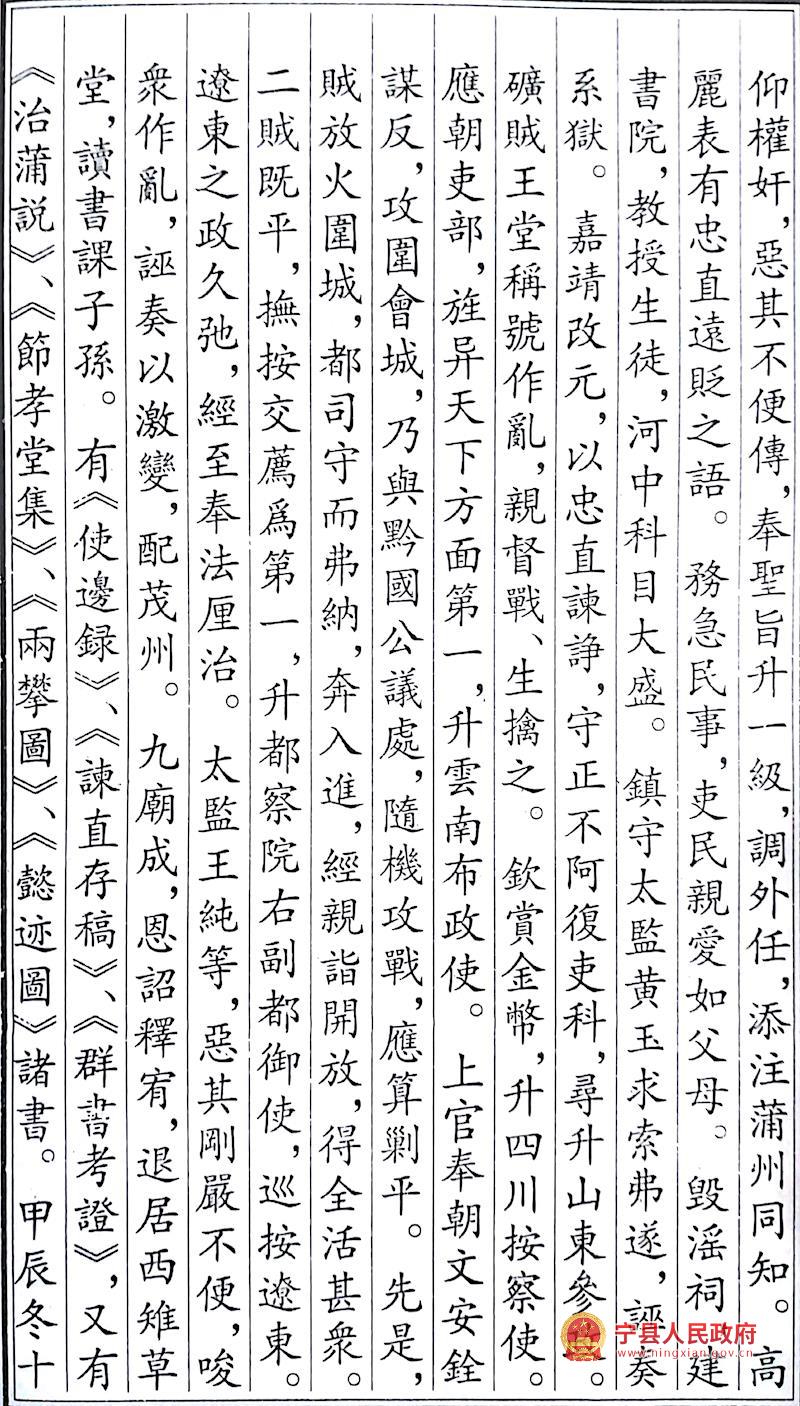 仰權奸，惡其不便傳，奉聖旨升一級，調外任，添注蒲州同知。高
麗表有忠直遠貶之語。務急民事，吏民親愛如父母。毁滛祠建
書院，教授生徒，河中科目大盛。鎮守太監黄玉求索弗遂，誣奏
系獄。嘉靖改元，以忠直諫諍，守正不阿復吏科，尋升山東參
礦賊王堂稱號作亂，親督戰、生擒之。欽賞金幣，升四川按察使。
應朝吏部，旌异天下方面第一，升雲南布政使。上官奉朝文安銓
謀反，攻圍會城，乃與黔國公議處，隨機攻戰，應算剿平。先是，
賊放火圍城，都司守而弗納，奔入進，經親詣開放，得全活甚衆。
二賊既平，撫按交薦爲第一，升都察院右副都御使，巡按遼東。
遼東之政久弛，經至奉法厘治。太監王純等，惡其剛嚴不便，唆
衆作亂，誣奏以激變，配茂州。九廟成，恩詔釋宥，退居西雉草
堂，讀書課子孫。有《使邊録》、《諫直存稿》、《群書考證》，又有
《治蒲説》、《節孝堂集》、《兩攀圖》、《懿迹圖》諸書。甲辰冬十
宁县人民政府
www.ningxian.gov.cn